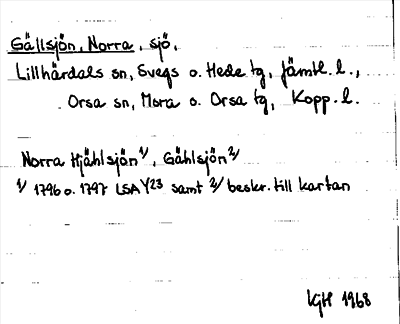 Gällsjön, Norra, sjö,
Lillhärdals sn, Svegs o. Hede tg, Jämtl. l.,
Orsa sn, Mora o. Orsa tg, Kopp. l.
Norra Hjählsjön 1/, Gåhlsjön 2/
1/ 1796 o. 1797 LSA Y23 samt 2/ beskr. till kartan
KgH 1968